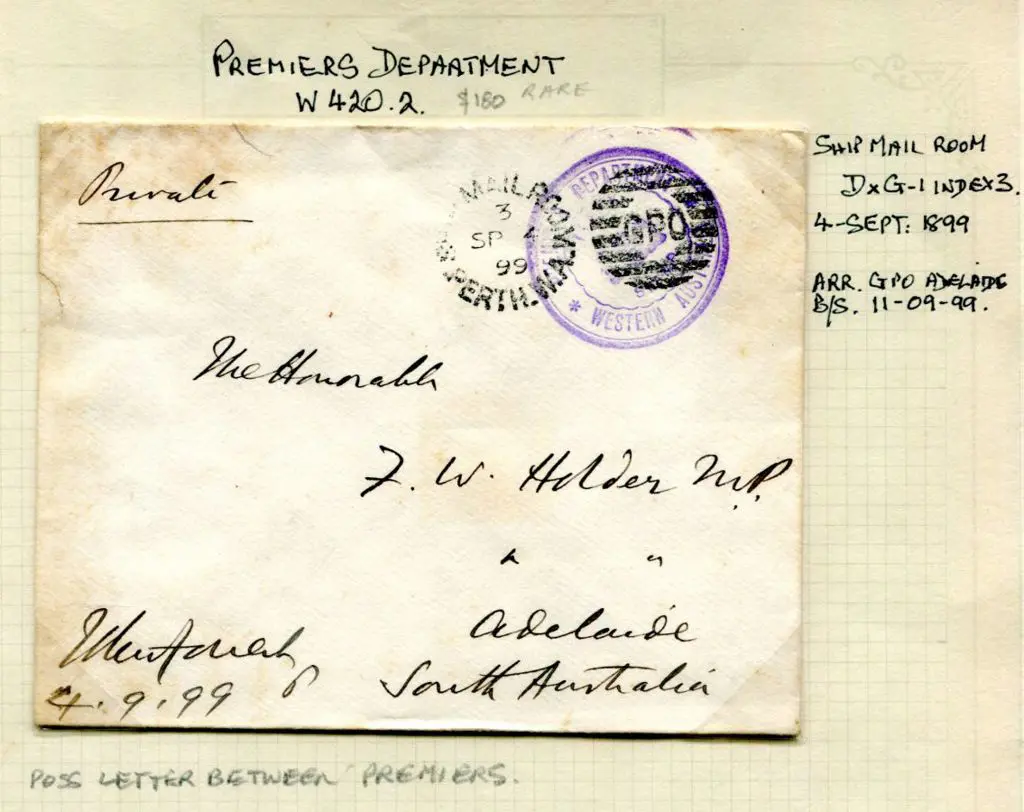 PREMIERS DEPARTMENT
W 420.2. $180 RARE
SHIP MAIL ROOM
DxG-1 INDEX 3.
4-SEPT: 1899
ARR. GPO ADELAIDE
B/S. 11-09-99.
Private
MAIL ROOM
3
SP 4
99
PERTH. W.A.
GPO
DEPARTMENT
* WESTERN AUST
The Honorable
F. W. Holder M.P.
" "
Adelaide
South Australia
4.9.99
POSS LETTER BETWEEN PREMIERS.